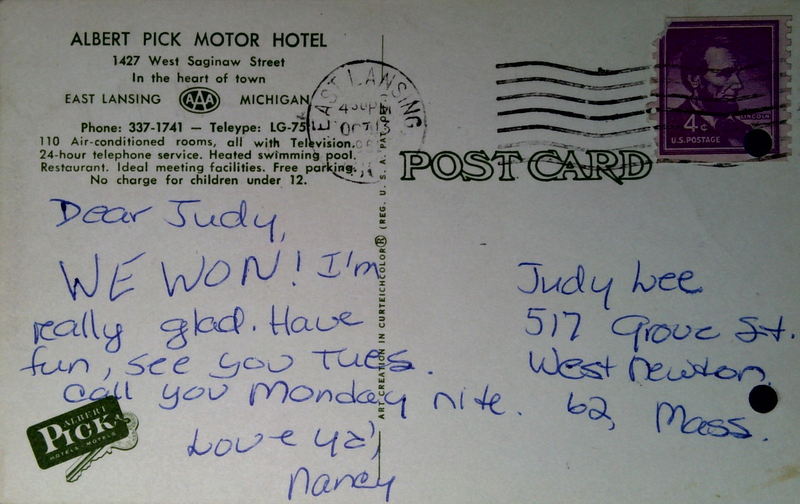 ALBERT PICK MOTOR HOTEL
1427 West Saginaw Street
In the heart of town
EAST LANSING AAA MICHIGAN
Phone: 337-1741 — Teleype: LG-75
110 Air-conditioned rooms, all with Television.
24-hour telephone service. Heated swimming pool.
Restaurant. Ideal meeting facilities. Free parking.
No charge for children under 12.
EAST LANSING
OCT 13
LINCOLN
4¢
U.S. POSTAGE
POST CARD
ART CREATION IN CURTEICHCOLOR® (REG. U. S. A. PAT.
Dear Judy,
WE WON! I'm
really glad. Have
fun, see you Tues.
Call you Monday nite.
Love ya',
Nancy
Judy Lee
517 Grove St.
West Newton,
62, Mass.
ALBERT
PICK
HOTELS·MOTELS